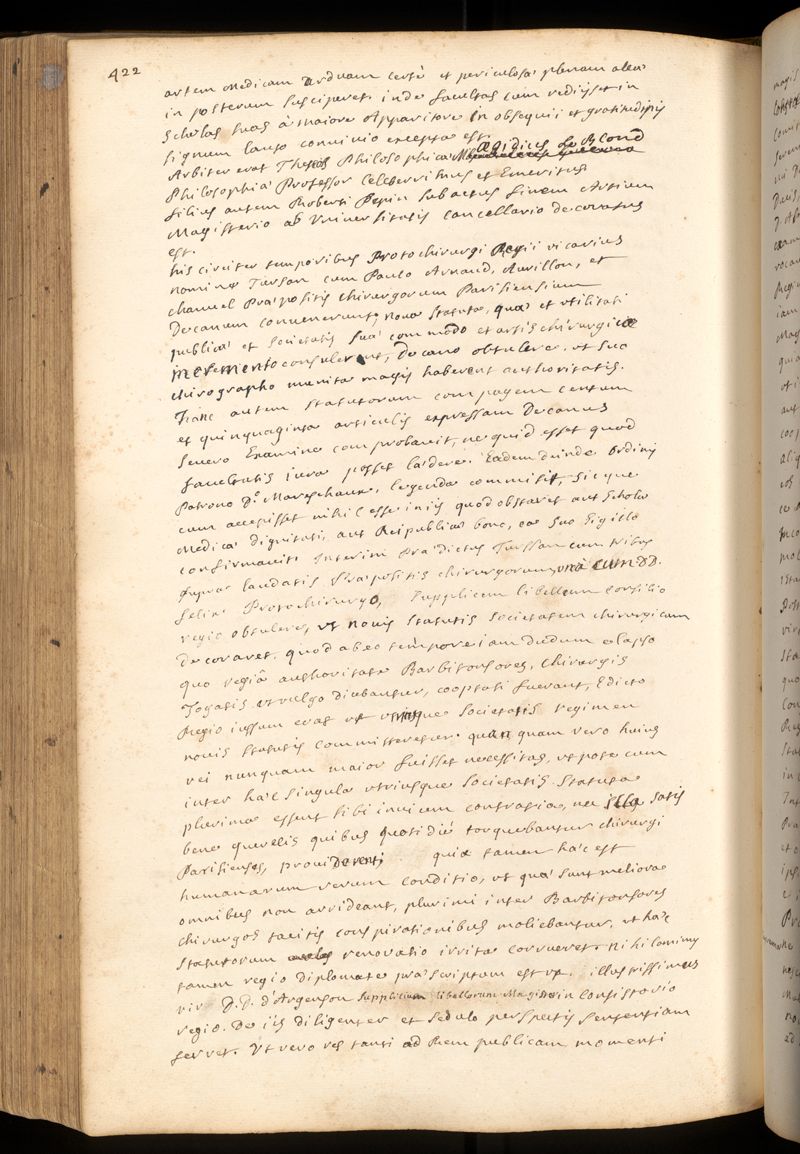 422
artem Medicam arduam certè et periculosâ plenam aleâ
in posterum susciperet. inde facultas cum rediisset in
scholas suas à maiore Apparitore in obsequii et gratitudinis
signum lauto convivio excepta est.
Arbiter erat Theseos Philosophicæ M. Ægidius Le Blond
Philosophiæ Professor Celeberrimus et Emeritus
filius autem Roberti Pepin subactus finem Artium
Magisterio ab Vniversitatis cancellario decoratus
est.
his circiter temporibus Protochirurgi Regii vicarius
nomine Tursan cum Paulo Arnaud, Auvillon, et
chauvel Præpositis chirurgorum Parisiensium
Decanum convenerunt, nova statuta, quæ et vtilitati
publicæ et societatis suæ commodo et artis chirurgicæ
incremento consulerent, decano obtulere, ut suo
chirographo munita magis haberent authoritatis.
Hanc autem statutorum compagem centum
et quinquaginta articulis expressam Decanus
severo Examine comprobavit, ne quid esset quod
facultatis iura posset lædere. Eadem deinde ordinis
Patrono D.º Mareschaux, legenda commisit, sicque
cum accepisset nihil esse in iis quod obstaret aut scholæ
medicæ dignitati, aut Reipublicæ bono, ea suo sigillo
confirmavit. Interim Prædictus Tursan cum tribus
supra laudatis Præpositis chirurgorum, vnà cum DD.
Felix Protochirurgo, supplicem libellum consilio
regio obtulere, vt novis statutis societatem chirurgicam
decoraret. quod ab eo tempore iam dudum elapso
quo regiâ authoritate Barbitonsores, chirurgis
Togatis vt vulgo dicebantur, cooptati fuerant, Edicto
Regio iussum erat vt vtriusque societatis regimen
novis statutis committeretur. quanquam vero huius
rei nunquam maior fuisset necessitas, vtpote cum
inter hæc singula vtriusque societatis statuta
plurima essent sibi invicem contraria, nec illa satis
bene querelis quibus quotidiè torquebantur chirurgi
Parisienses, providerent; quia tamen hæc est
humanarum rerum conditio, vt quæ sunt meliora
omnibus non arrideant, plurimi inter Barbitonsores
chirurgos tacitis conspirationibus moliebantur, vt hæc
statutorum renovatio irrita corrueret. nihilominus
tamen regio diplomate præscriptum est vt illustrissimus
vir D.D. d'Argenson supplicum libellorum Magister in consistorio
regio. De iis diligenter et sedulo perspectis sententiam
ferret. Vt vero res tanti ad Rem publicam momenti